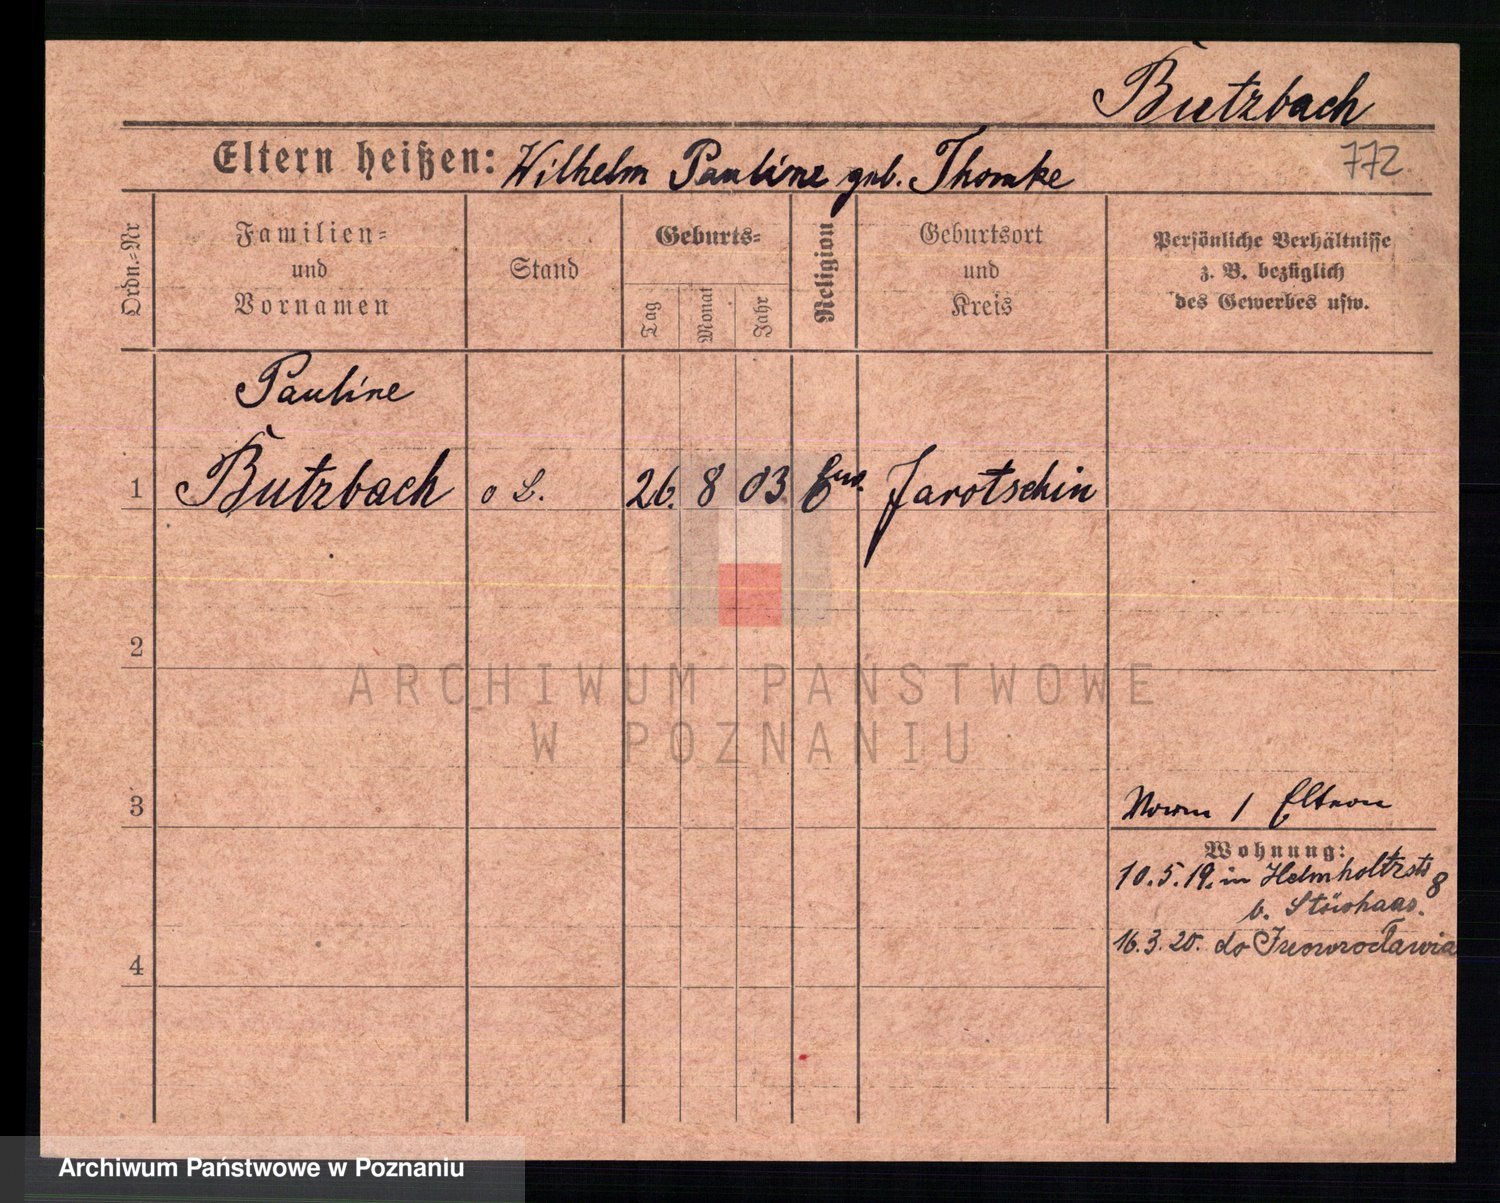 Butzbach
Eltern heißen: Wilhelm Pauline geb. Thomke
772
Ordn.-Nr
Familien-
und
Vornamen
Stand
Geburts-
Tag
Monat
Jahr
Religion
Geburtsort
und
Kreis
Persönliche Verhältnisse
z. B. bezüglich
des Gewerbes usw.
Pauline
1 Butzbach o L. 26. 8 03. Ev. Jarotschin
2
ARCHIWUM PAŃSTWOWE
W POZNANIU
3
/ Eltern
Wohnung:
10.5.19. in Helmholtzstr 8
b.
16.3.20. do Inowrocławia
4
Archiwum Państwowe w Poznaniu